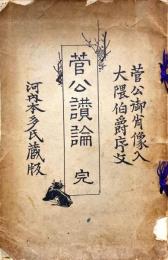 菅公御肖像入
大隈伯爵序文
菅公讃論 完
河内本多氏蔵版